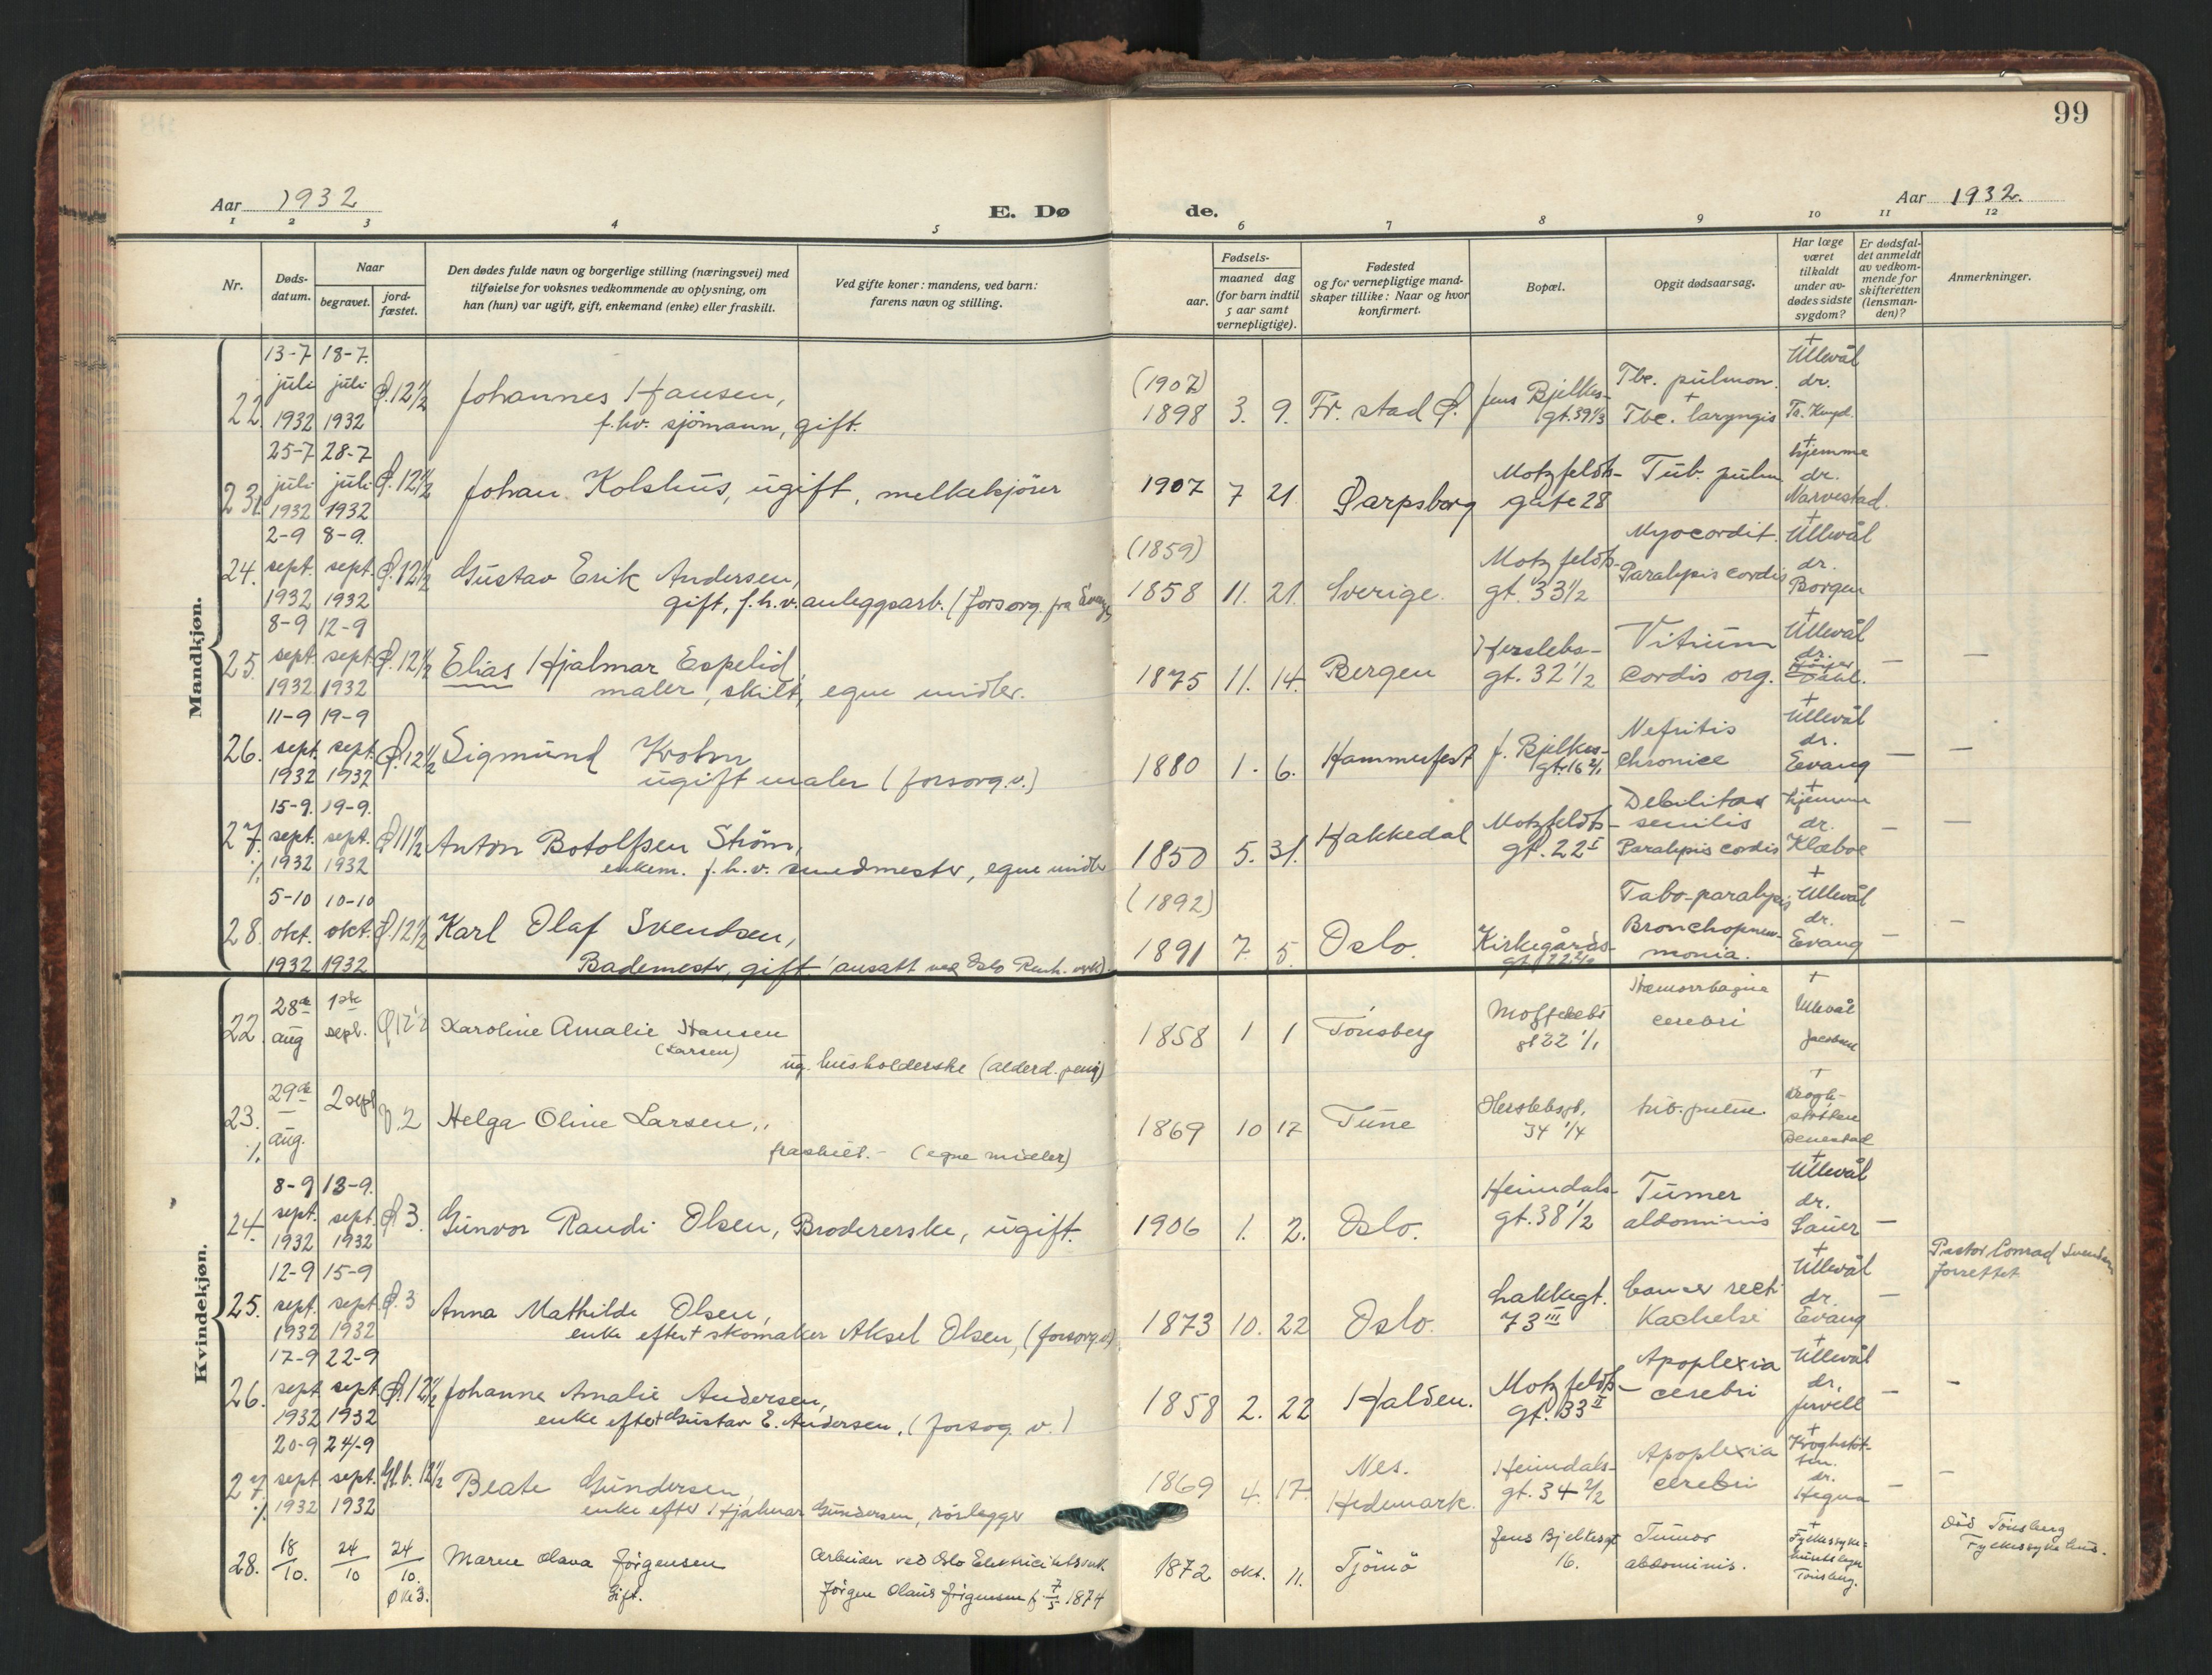 99
Aar 1932
E. Dø de.
Aar 1932.
1 2 3 4 5 6 7 8 9 10 11 12
Nr.
Døds-
datum.
Naar
begravet.
jord-
fæstet.
Den dødes fulde navn og borgerlige stilling (næringsvei) med
tilføielse for voksnes vedkommende av oplysning, om
han (hun) var ugift, gift, enkemand (enke) eller fraskilt.
Ved gifte koner: mandens, ved barn:
farens navn og stilling.
Fødsels-
aar.
maaned dag
(for barn indtil
5 aar samt
vernepligtige).
Fødested
og for vernepligtige mand-
skaper tillike: Naar og hvor
konfirmert.
Bopæl.
Opgit dødsaarsag.
Har læge
været
tilkaldt
under av-
dødes sidste
sygdom?
Er dødsfal-
det anmeldt
av vedkom-
mende for
skifteretten
(lensman-
den)?
Anmerkninger.
Mandkjøn.
13-7 18-7 Ullevål
juli juli Ø. 12 1/2 (1907) Tbc. pulmon. dr.
22. 1932 1932 Johannes Hansen, 1898 3. 9. Fr. stad Ø. Jens Bjelkes- gt. 39 1/3 Tbc. laryngis
f.hv. sjömann, gift.
25-7 28-7 hjemme
juli juli Ø. 12 1/2 Motzfeldts- dr.
23. 1932 1932 Johan Kolshus, ugift, melkekjörer 1907 7 21 Sarpsborg gate 28 Tub. pulm. Narvestad.
2-9 8-9. (1859) Myocordit. Ullevål
24. sept. sept. Ø. 12 1/2 Gustav Erik Andersen, Motzfeldts- Paralysis cordis dr.
1932 1932 gift, f.h.v. anleggsarb. (forsorg. fra 1858 11. 21. Sverige. gt. 33 1/2 Borgen
8-9 12-9 Ullevål
25. sept. sept. Ø. 12 1/2 Elias Hjalmar Espelid, 1875 11. 14. Bergen Herslebs- Vitium dr.
1932 1932 maler, skilt, egne midler. gt. 32 1/2 cordis org. — —
11-9 19-9 Ullevål
26. sept. sept. Ø. 12 1/2 Sigmund Krohn 1880 1. 6. Hammerfest J. Bjelkes- Nefritis dr.
1932 1932 ugift maler (forsorg.v.) gt. 16 2/1 chronice Evang — —
15-9. 19-9. Debilitas hjemme
27. sept. sept. Ø 11 1/2 Anton Botolfsen Ström, 1850 5. 31. Hakkedal Motzfeldts- senilis dr. — —
1932 1932 enkem. f.h.v. smedmester, egne midler gt. 22 I Paralysis cordis Klæboe
5-10 10-10 (1892) Tabo-paralysis Ullevål
28. okt. okt. Ø. 12 1/2 Karl Olaf Svendsen, 1891 7. 5. Oslo. Kirkegårds- Bronchopneu- dr. — —
1932 1932 Bademester, gift (ansatt ved Oslo Renh. verk) monia. Evang
Kvindekjøn.
28de 1ste Hæmorrhagia
22 aug sept. Ø 12 1/2 Karoline Amalie Hansen 1858 1 1 Tönsberg gt 22 1/1 cerebri Ullevål
(Larsen) Jacobsen
ug. husholderske (alderd. peng)
29de 2 sept Krogh-
23. aug. Ø. 2 Helga Oline Larsen, 1869 10 17 Tune Herslebsgt. 34 1/4 tub. pulm. støtten
fraskilt. - (egne midler)
8-9 13-9. Ullevål
24. sept. sept. Ø 3. Gunvor Randi Olsen, Brodererske, ugift. 1906 1. 2. Oslo. Heimdals- Tumer dr.
1932 1932 gt. 38 1/2 abdominis Sauer —
12-9 15-9 Ullevål Pastor Conrad Svendsen
25. sept. sept. Ø. 3 Anna Mathilde Olsen, 1873 10. 22 Oslo. Lakkegt. Cancer recti dr. — forrettet
1932 1932 enke efter skomaker Aksel Olsen, (forsorg.v.) 73 III Kachelsi Evang
17-9 22-9 Ullevål
26. sept. sept Ø. 12 1/2 Johanna Amalie Andersen, 1858 2. 22 Halden. Motzfeldts- Apoplexia dr. — —
1932 1932 enke efter Gustav E. Andersen. (forsog. v.) gt. 33 II cerebri Jervell
20-9 24-9 Kroghstøt-
27. sept sept. Gl. b. 12 1/2 Beate Gundersen, 1869 4. 17. Nes. Heimdals- Apoplexia ten. dr. — —
1932 1932 enke efter Hjalmar Gundersen, rörlegger Hedemark. gt. 34 2/2 cerebri Hegna
28. 18/10. 24/10 24/10. Maren Olava Jörgensen Arbeider ved Oslo Elektricitetsverk. 1872 okt. 11. Tjömö Jens Bjelkesgt 16. Tumor abdominis. Död Tönsberg
Ø kl 3. Gift. Jörgen Olaus Jörgensen f. 7/5 1874 Tönsberg. Fylkessykehus.